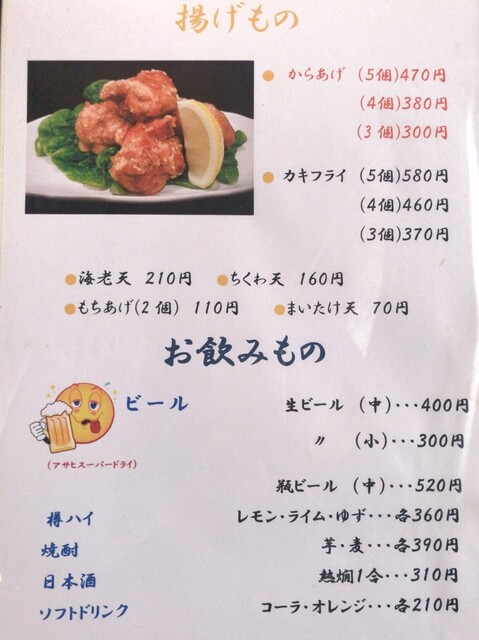 揚げもの
● からあげ (5個)470円
(4個)380円
(3個)300円
● カキフライ (5個)580円
(4個)460円
(3個)370円
●海老天 210円 ●ちくわ天 160円
●もちあげ(2個) 110円 ●まいたけ天 70円
お飲みもの
ビール 生ビール (中)・・・400円
〃 (小)・・・300円
(アサヒスーパードライ)
瓶ビール (中)・・・520円
樽ハイ レモン・ライム・ゆず・・・各360円
焼酎 芋・麦・・・各390円
日本酒 熱燗1合・・・310円
ソフトドリンク コーラ・オレンジ・・・各210円